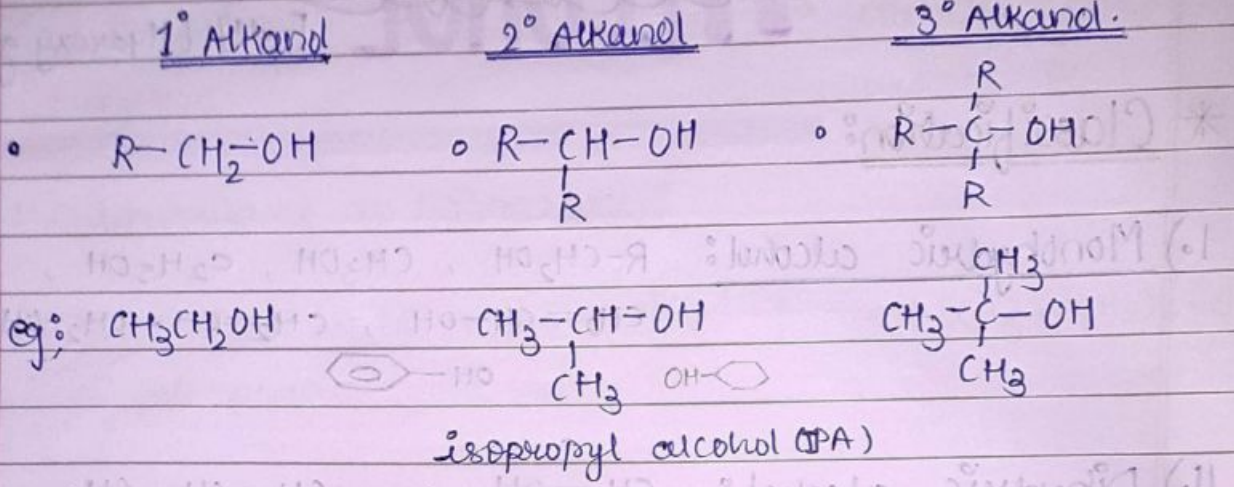 1° Alkanol 2° Alkanol 3° Alkanol.
R
• R-CH₂-OH • R-CH-OH • R-C-OH
R R
CH₃
eg; CH₃CH₂OH CH₃-CH-OH CH₃-C-OH
CH₃ CH₃
OH
isopropyl alcohol (IPA)